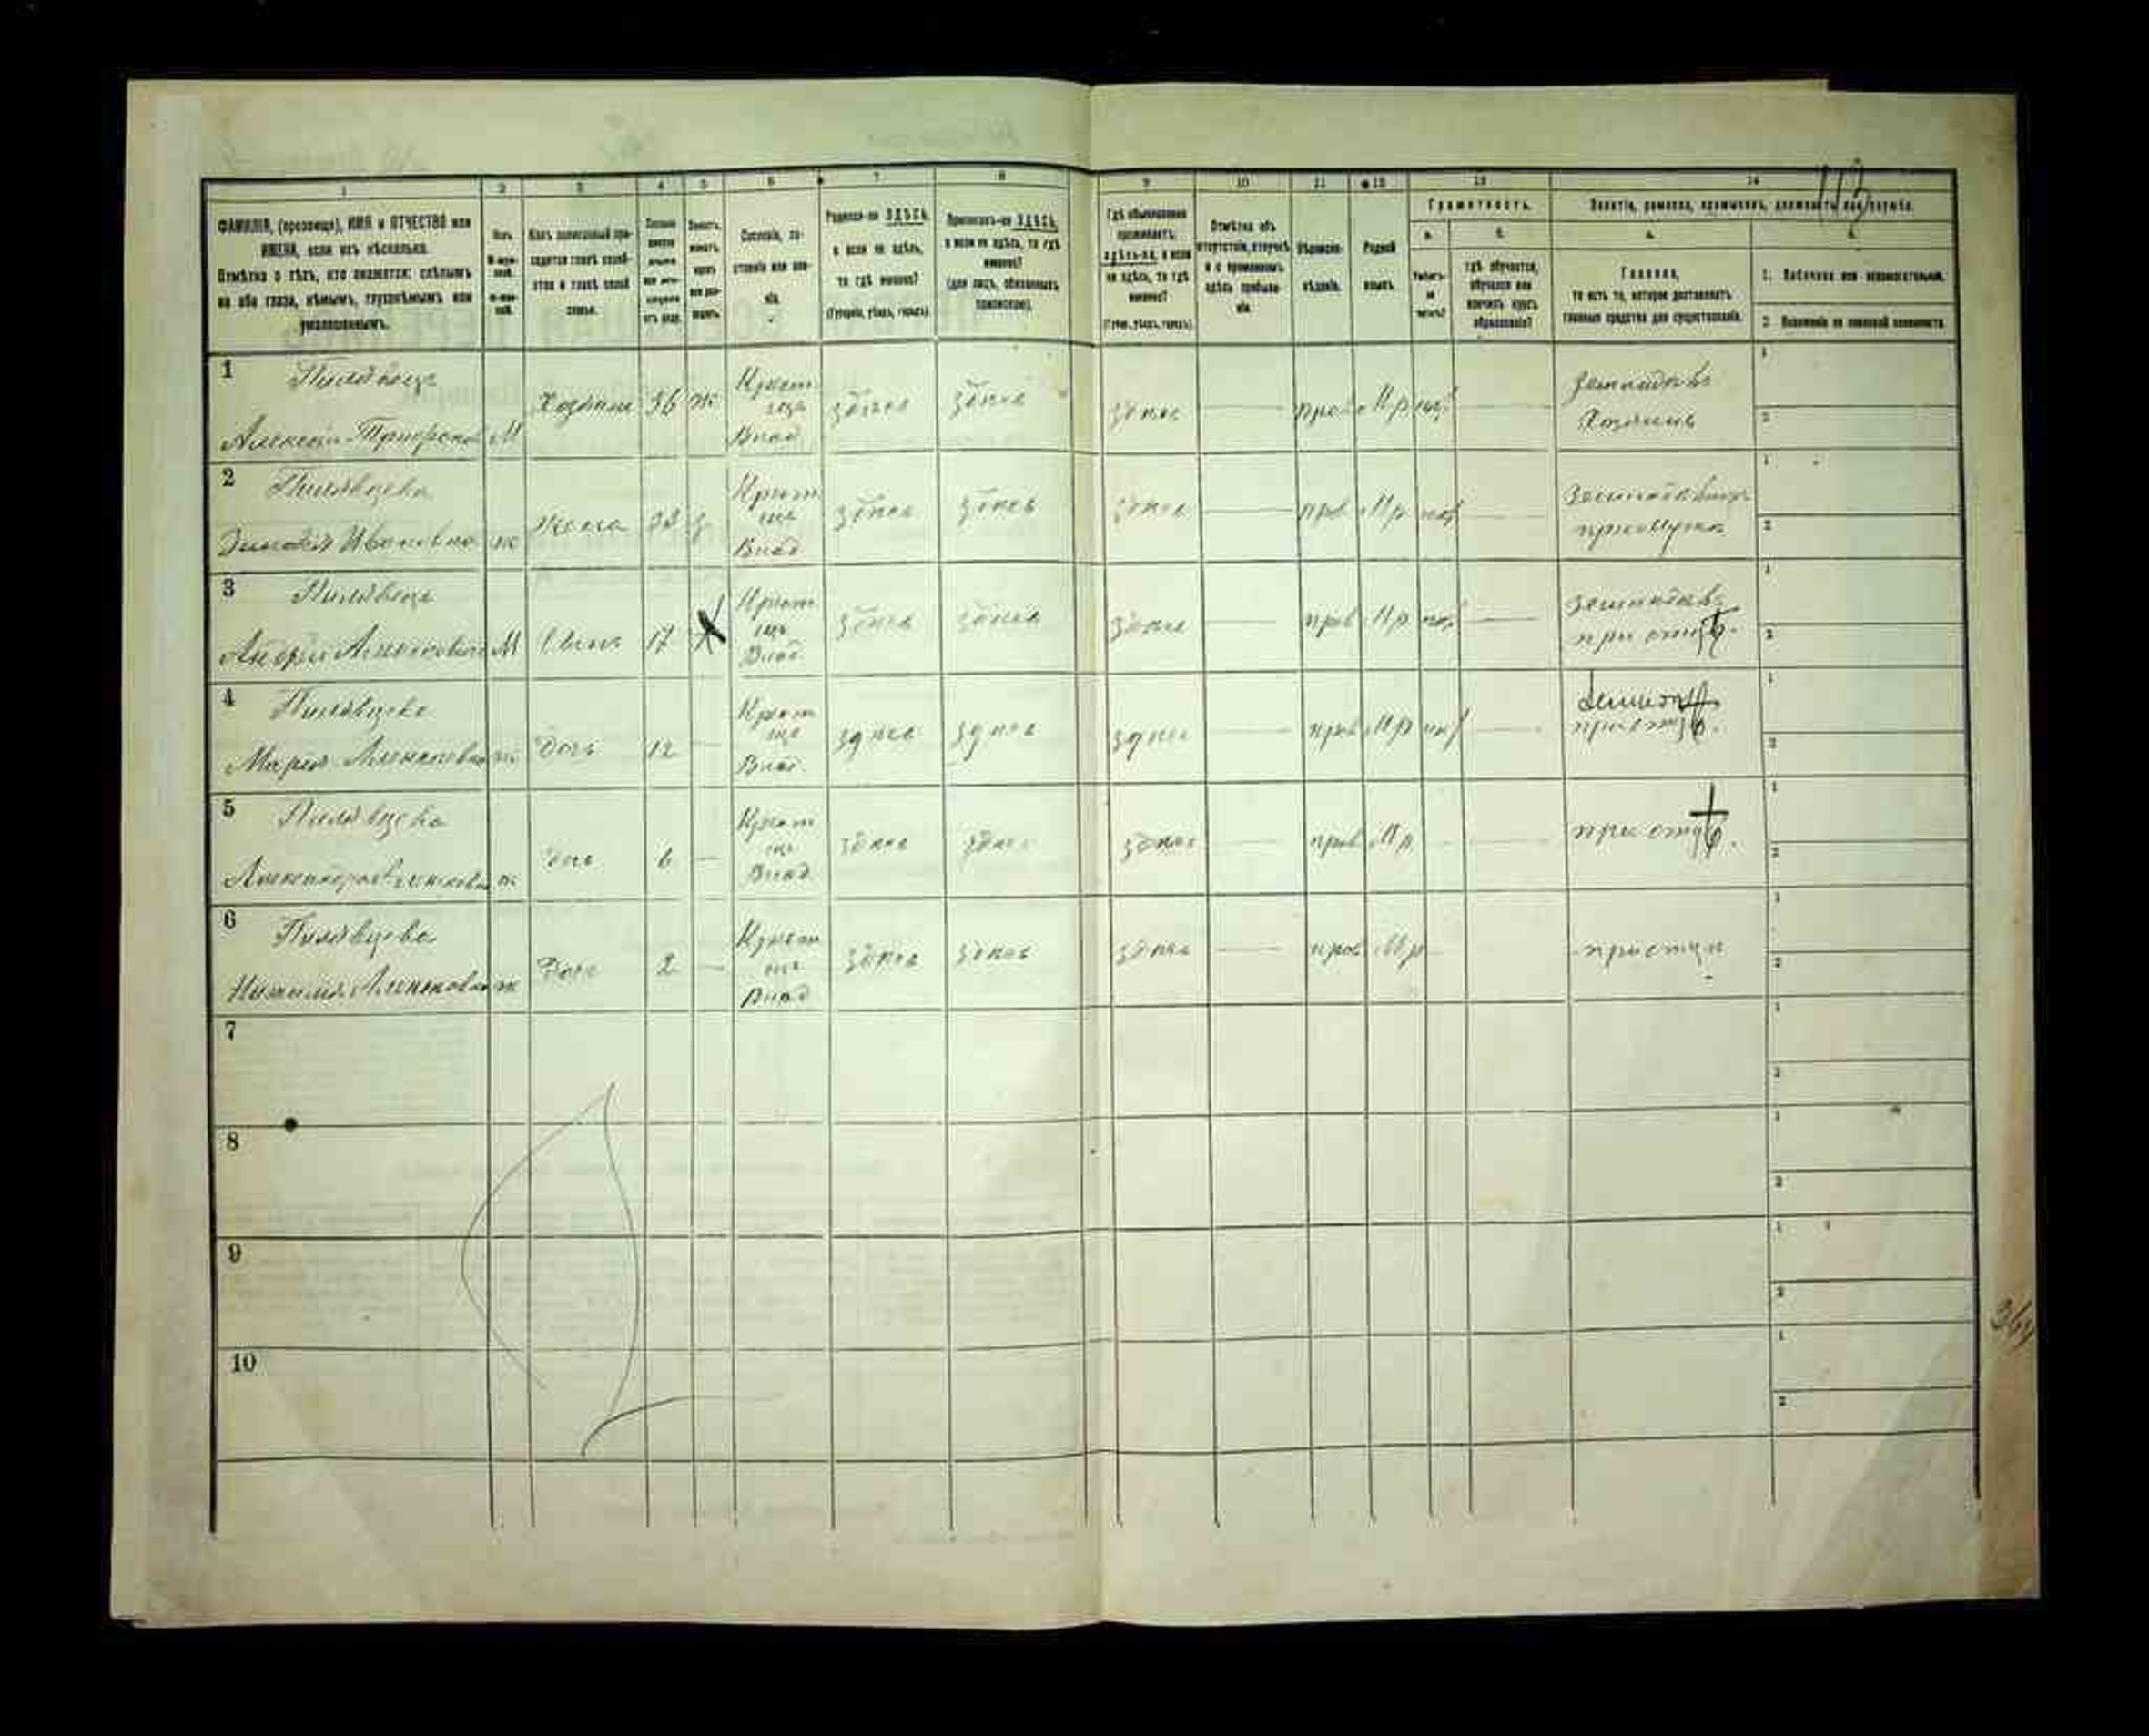 113
1 2 3 4 5 6 7 8 9 10 11 12 13 14
ФАМИЛІЯ, (прозвище), ИМЯ и ОТЧЕСТВО или
ИМЕНА, если ихъ нѣсколько.
Отмѣтка о тѣхъ, кто окажется: слѣпымъ
на оба глаза, нѣмымъ, глухонѣмымъ или
умалишеннымъ.
Полъ.
Какъ записанный приходится главѣ хозяйства и главѣ своей семьи.
Сословіе, состояніе или званіе.
Родился-ли ЗДѢСЬ,
а если не здѣсь,
то гдѣ именно?
(Губернія, уѣздъ, городъ).
Приписанъ-ли ЗДѢСЬ,
а если не здѣсь, то гдѣ
именно?
(для лицъ, обязанныхъ
припискою).
Гдѣ обыкновенно
проживаетъ:
здѣсь-ли, а если
не здѣсь, то гдѣ
именно?
(Губ., уѣздъ, городъ).
Отмѣтка объ
отсутствіи, отлучкѣ
и о временномъ
здѣсь пребываніи.
Вѣроисповѣданіе.
Родной
языкъ.
Грамотность.
а.
Умѣетъ-
ли
читать?
б.
гдѣ обучается,
обучался или
кончилъ курсъ
образованія?
Занятіе, ремесло, промыселъ, должность или служба.
а.
Главное,
то есть то, которое доставляетъ
главныя средства для существованія.
б.
1. Побочное или вспомогательное.
2. Положеніе по воинской повинности.
1 Пилявецъ
Алексѣй Трифонов М Хозяинъ 36 ж Крест Влад здѣсь здѣсь здѣсь — прав Мр Хозяинъ
1
2
2 Пилявцева
Зиновія Ивановна ж жена Крест Влад здѣсь здѣсь здѣсь — прав Мр —
1
2
3 Пилявецъ
Андрей Алексѣевичъ М Сынъ 17 Крест Влад здѣсь здѣсь здѣсь — прав Мр — при отцѣ.
1
2
4 Пилявцева
Марія Алексѣевна ж Дочь 12 — Крест Влад здѣсь здѣсь здѣсь — прав Мр — при отцѣ.
1
2
5 Пилявцева
Александра Алексѣевна ж дочь 6 — Крест Влад здѣсь здѣсь здѣсь — прав Мр — при отцѣ.
1
2
6 Пилявцева
Наталія Алексѣевна ж Дочь 2 — Крест Влад здѣсь здѣсь здѣсь — прав Мр — при отцѣ
1
2
7
1
2
8
1
2
9
1
2
10
1
2